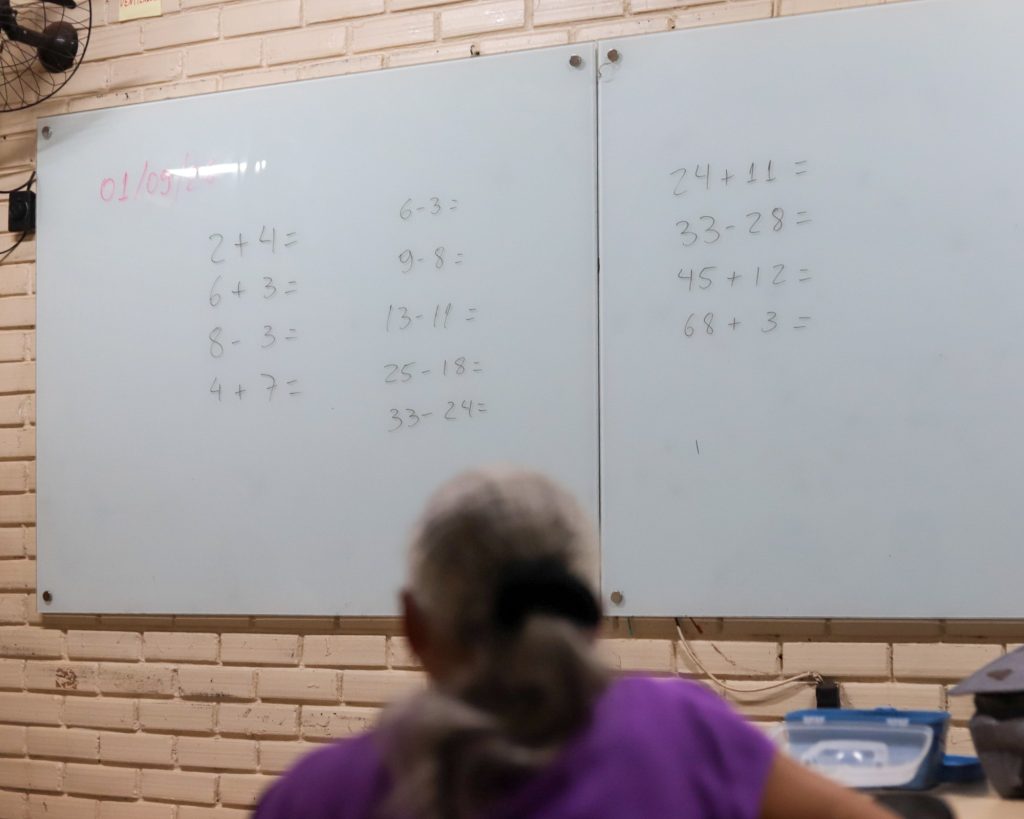 01/09/24
2 + 4 =
6 + 3 =
8 - 3 =
4 + 7 =
6 - 3 =
9 - 8 =
13 - 11 =
25 - 18 =
33 - 24 =
24 + 11 =
33 - 28 =
45 + 12 =
68 + 3 =